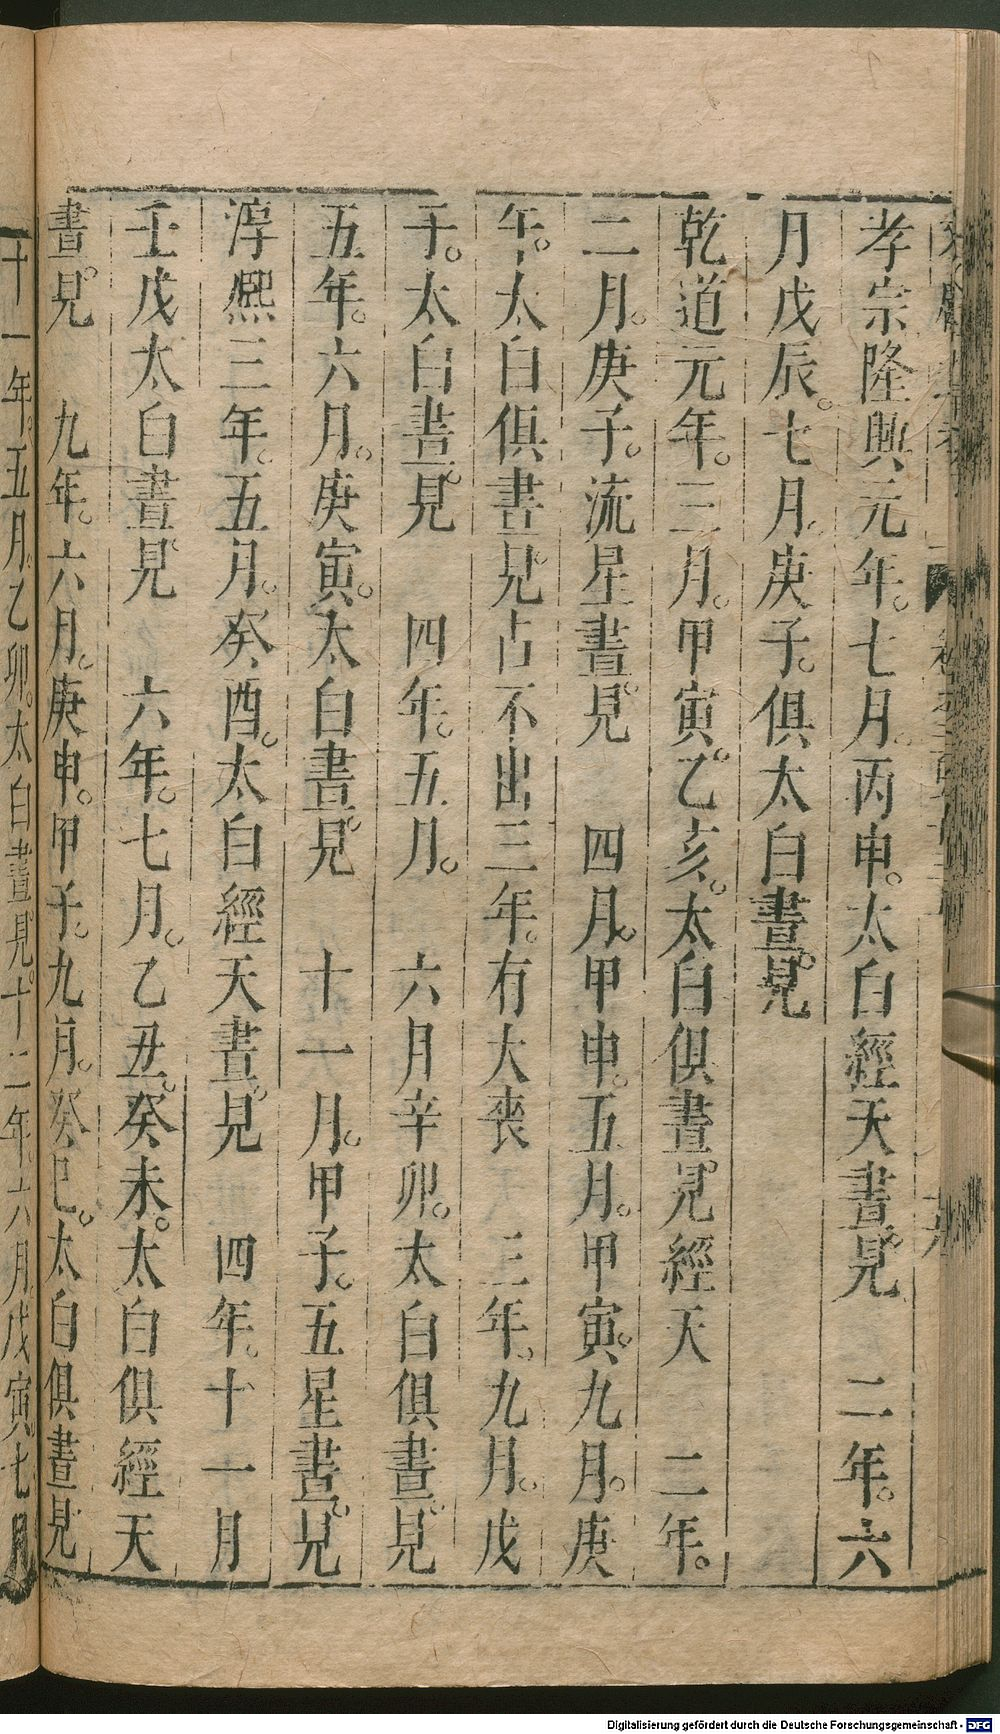 孝宗隆興元年。七月。丙申。太白經天晝見　二年。六
月戊辰。七月。庚子。俱太白晝見
乾道元年。三月。甲寅。乙亥。太白俱晝見經天　二年。
二月。庚子。流星晝見　四月。甲申。五月。甲寅。九月。庚
午。太白俱晝見占不出三年。有大喪　三年。九月。戊
午。太白晝見　四年。五月。　六月辛卯。太白俱晝見
五年。六月。庚寅。太白晝見　十一月。甲子。五星晝見
淳熙三年。五月。癸酉。太白經天晝見　四年。十一月
壬戌太白晝見　六年。七月。乙丑。癸未。太白俱經天
晝見　九年。六月。庚申。甲子。九月。癸巳。太白俱晝見
十一年。五月。乙卯。太白晝見。十二年。六月。戊寅。七月
Digitalisierung gefördert durch die Deutsche Forschungsgemeinschaft - DFG